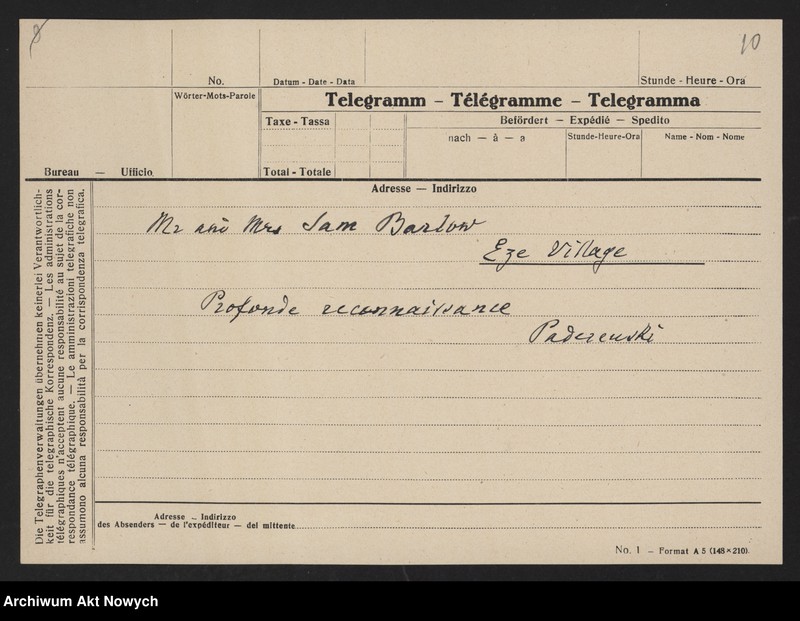 8
10
No.
Datum - Date - Data
Stunde - Heure - Ora
Wörter-Mots-Parole
Telegramm – Télégramme – Telegramma
Taxe - Tassa
Befördert — Expédié — Spedito
nach — à — a
Stunde-Heure-Ora
Name - Nom - Nome
Bureau — Ufficio
Total - Totale
Adresse — Indirizzo
Mr and Mrs Sam Barlow
Eze Village
Profonde reconnaissance
Paderewski
Die Telegraphenverwaltungen übernehmen keinerlei Verantwortlich-
keit für die telegraphische Korrespondenz. — Les administrations
télégraphiques n'acceptent aucune responsabilité au sujet de la cor-
respondance télégraphique. — Le amministrazioni telegrafiche non
assumono alcuna responsabilità per la corrispondenza telegrafica.
Adresse – Indirizzo
des Absenders — de l'expéditeur — del mittente
No. 1 – Format A 5 (148×210).
Archiwum Akt Nowych